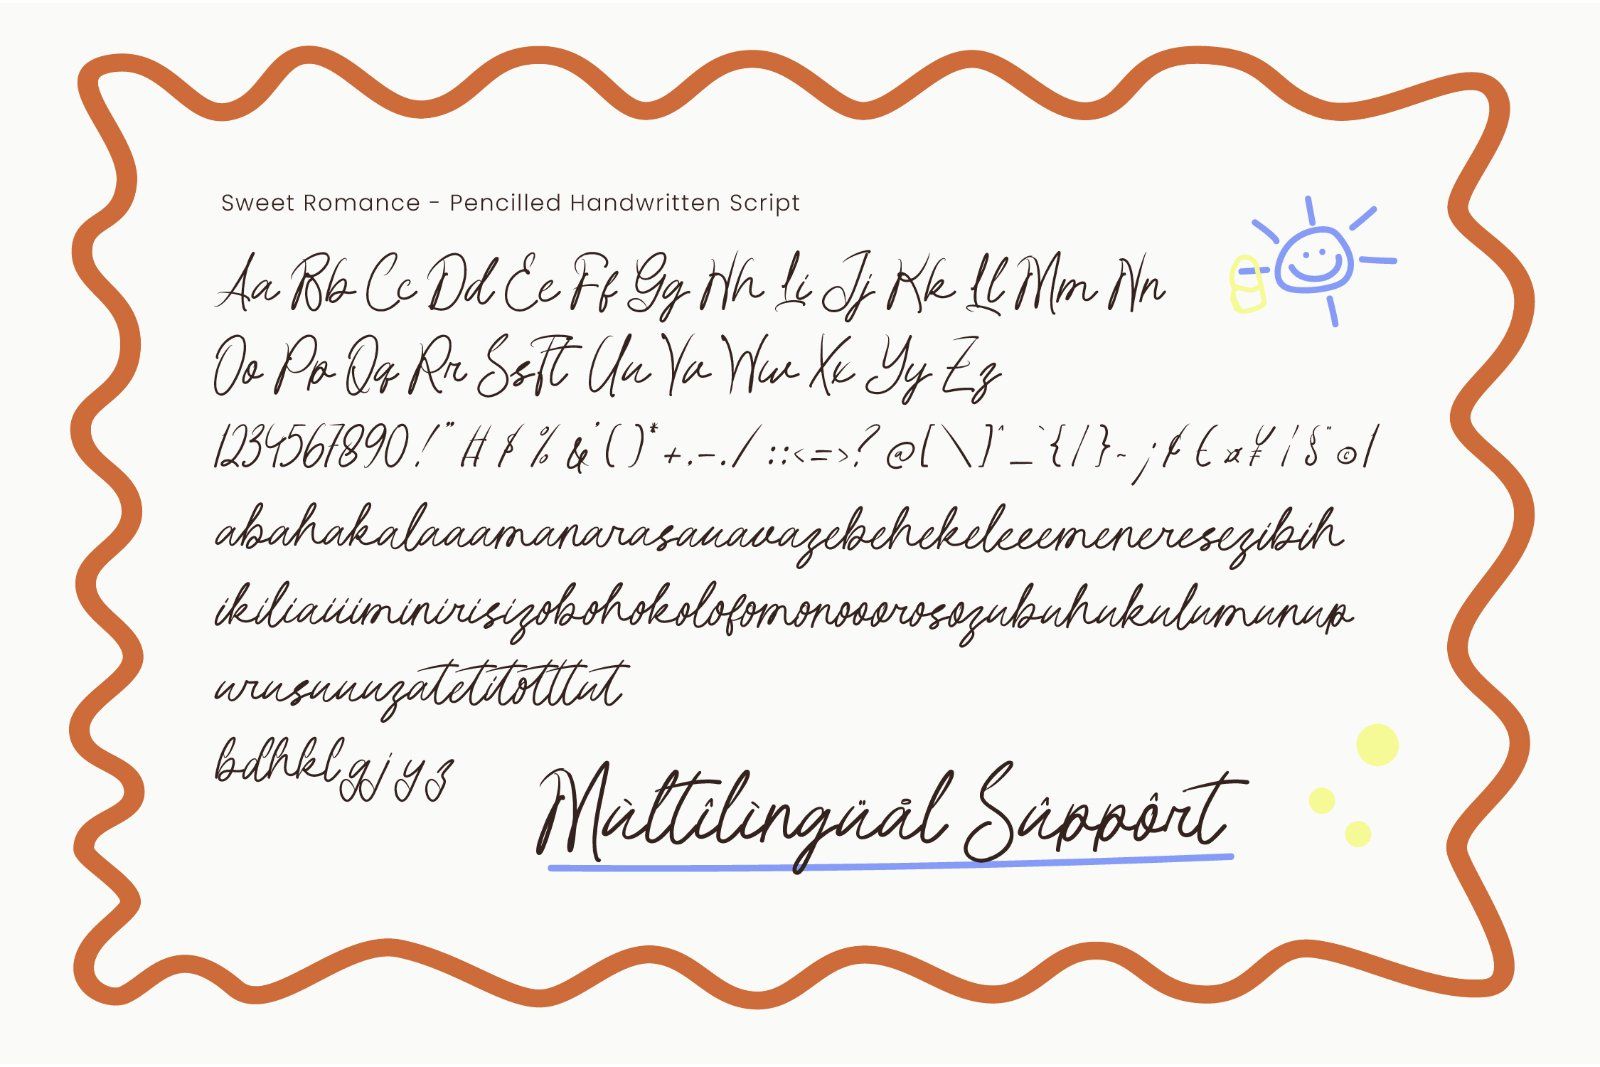 Sweet Romance - Pencilled Handwritten Script
Aa Bb Cc Dd Ee Ff Gg Hh Ii Jj Kk Ll Mm Nn
Oo Pp Qq Rr Ss Tt Uu Vv Ww Xx Yy Zz
1234567890 ! " # $ % & ' ( ) * + , - . / : ; < = > ? @ [ \ ] ^ _ ` { | } ~ ¡ ¢ € ¤ ¥ ¦ § ¨ ©
abahakalaaamanarasauavazebehekeleeemenereseezibih
ikiliaiiiminirisizobohokolofomonooorosozubuhukulumunup
urusuuuzatetitotttut
bdhklgjyz
Mùltîlìngüål Sûppôrt